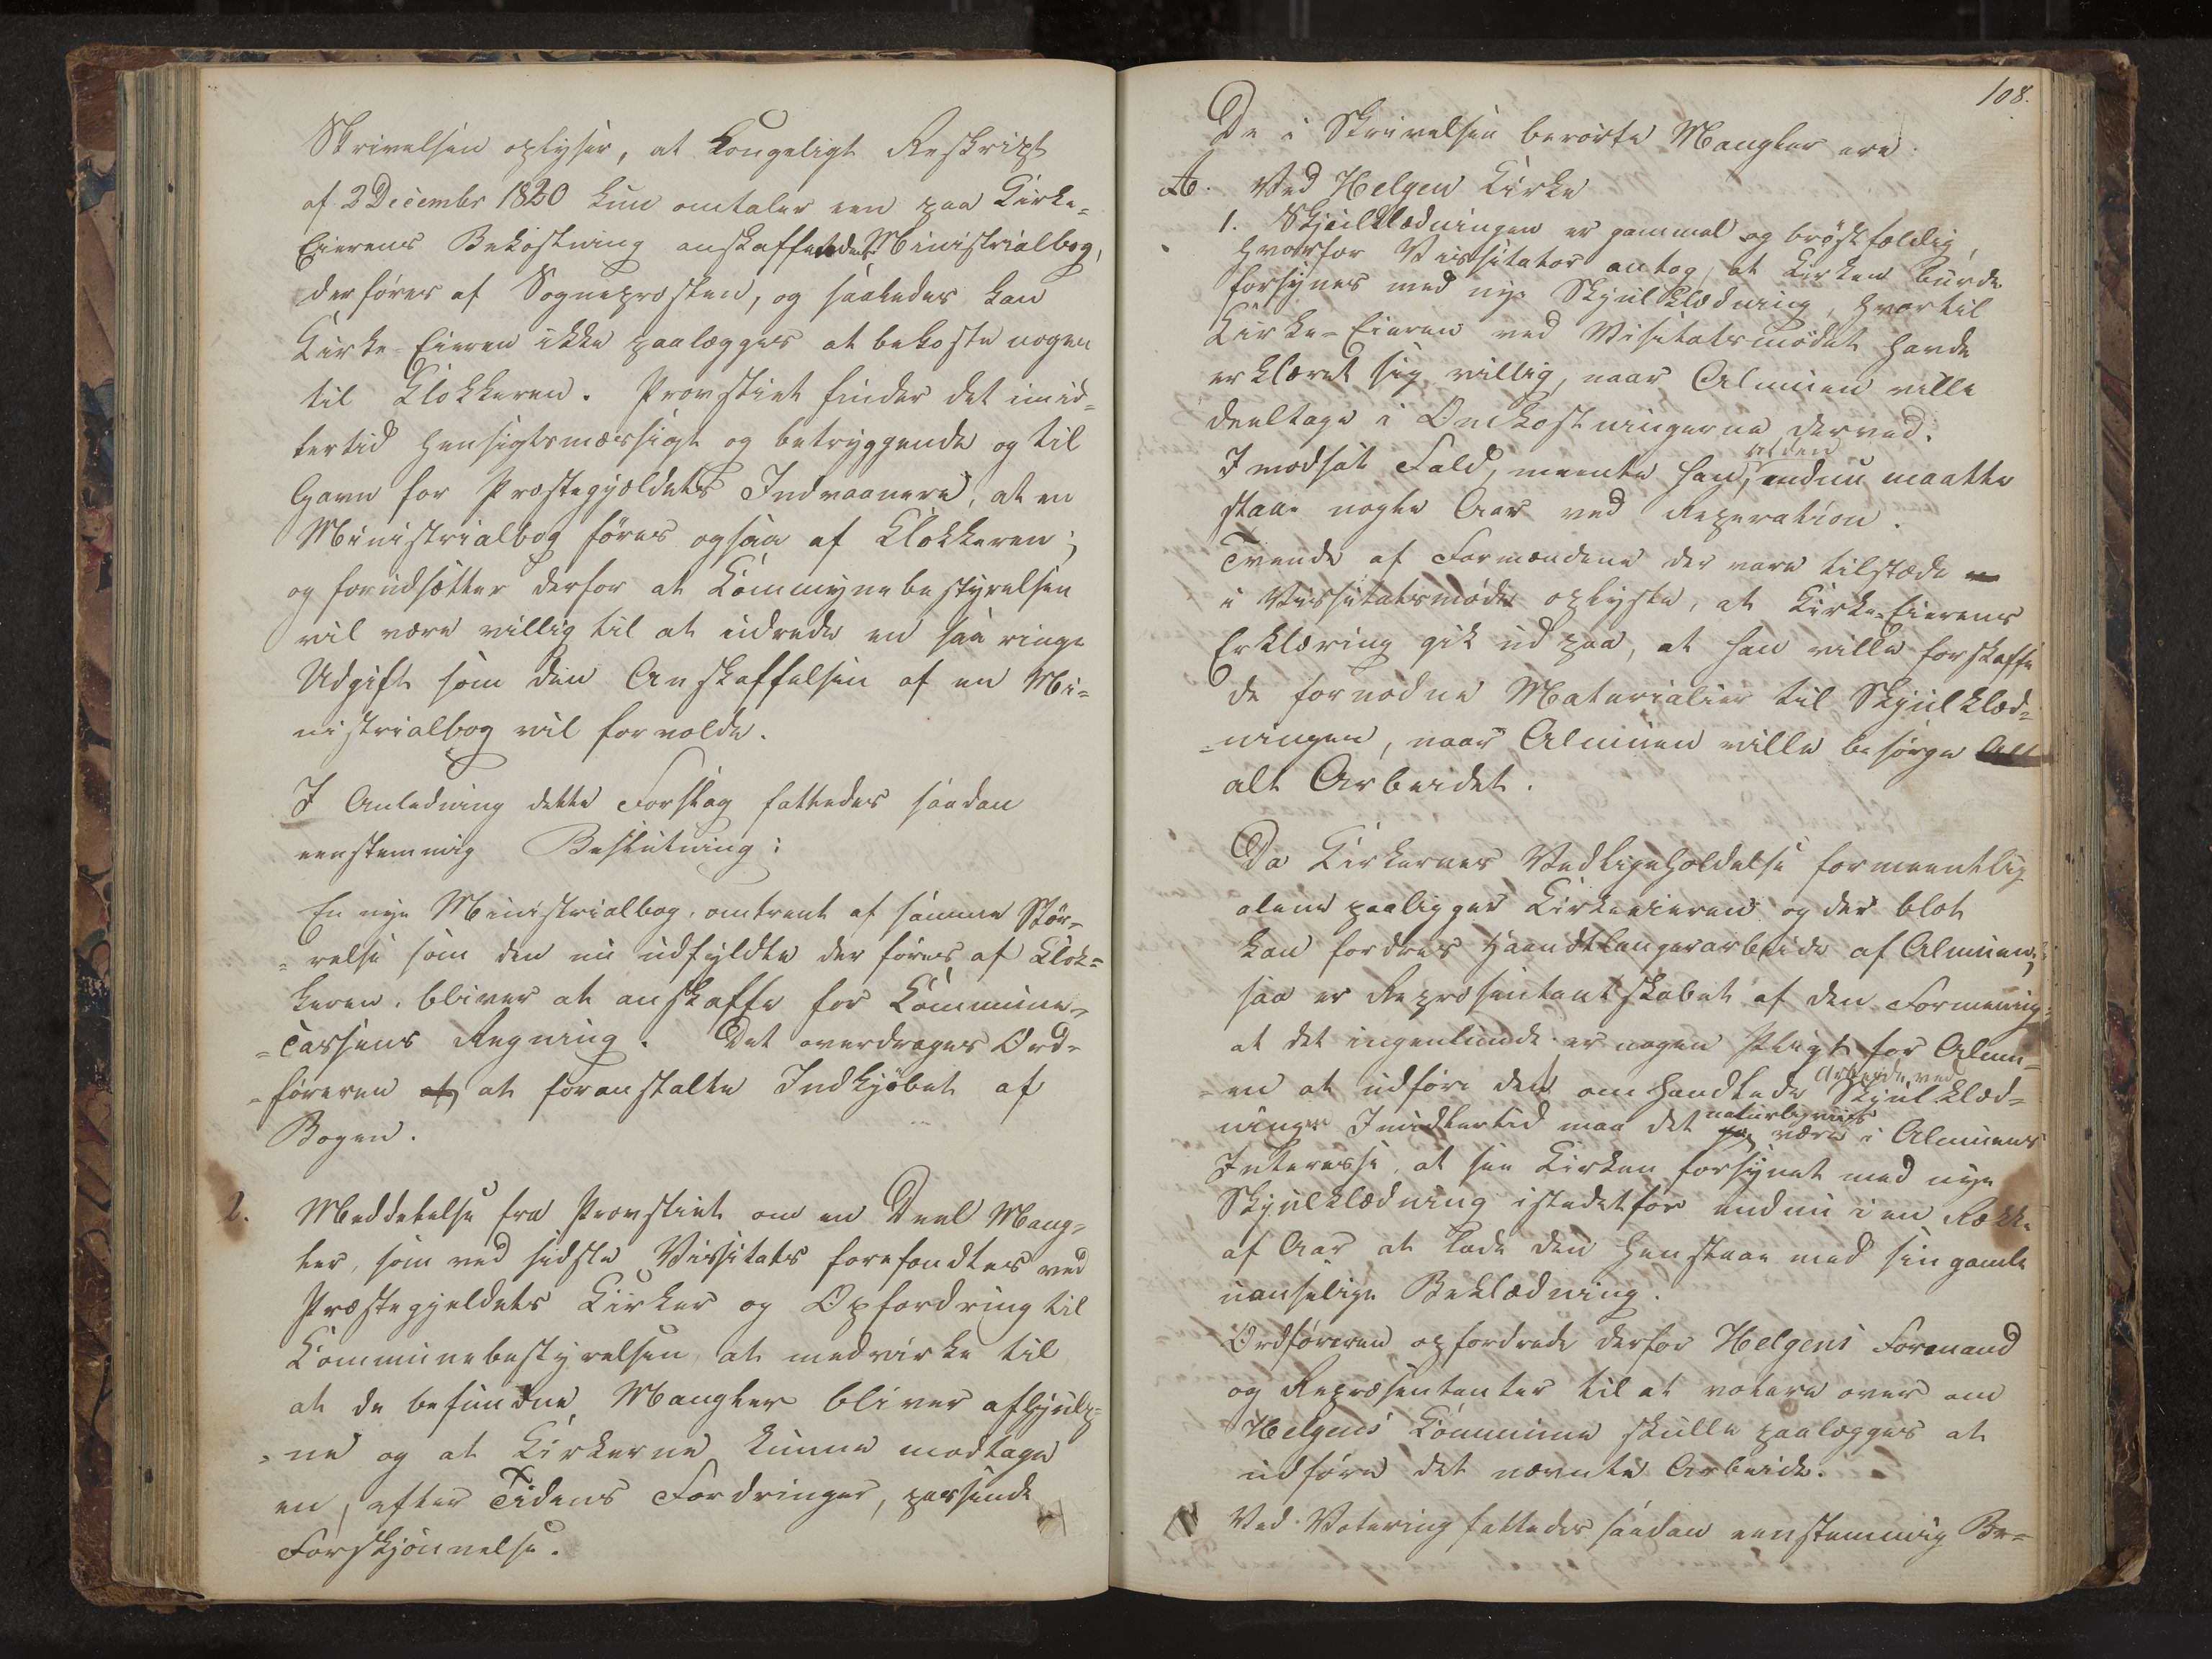 Skrivelsen oplyser, at Kongeligt Reskript
af 2 Decembr 1820 kun omtaler een paa Kirke=
Eierens Bekostning anskaffendes Ministrialbog,
der føres af Sognepræsten, og saaledes kan
Kirke-Eieren ikke paalægges at bekoste nogen
til Klokkeren. Provstiet finder det imid=
lertid hensigtsmæssigt og betryggende og til
Gavn for Præstegjældets Indvaanere, at en
Ministrialbog føres ogsaa af Klokkeren;
og forudsætter derfor at Kommynebestyrelsen
vil være villig til at udrede en saa ringe
Udgift som den Anskaffelsen af en Mi=
nistrialbog vil forvolde.
I Anledning dette Forslag fattedes saadan
eenstemmig Beslutning:
En nye Ministrialbog, omtrent af samme Stør=
=relse som den nu udfyldte der føres af Klok=
keren, bliver at anskaffe for Kommune=
=Cassens Regning. Det overdrages Ord=
=føreren af at foranstalte Indkjøbet af
Bogen.
2. Meddelelse fra Provstiet om en Deel Mang=
ler, som ved sidste Vissitats forefandtes ved
Præstegjeldets Kirker og Opfordring til
Kommunebestyrelsen, at medvirke til
at de befundne Mangler bliver afhjulp=
=ne og at Kirkerne kunne modtage
en, efter Tidens Fordringer, passende
Forskjønnelse.
108.
De i Skrivelsen berørte Mangler ere.
A. Ved Helgen Kirke
1. Skjulklædningen er gammel og brøstfældig,
hvorfor Vissitator antog, at Kirken burde
forsynes med nye Skjulklædning, hvortil
Kirke-Eieren ved Visitatsmødet havde
erklæret sig villig, naar Almuen ville
deeltage i Omkostningerne derved.
I modsat Fald, meente han, at den endnu maatte
staae nogle Aar ved Reperation.
Tvende af Formændene der vare tilstæde
i Vissitatsmøde oplyste, at Kirke-Eierens
Erklæring gik ud paa, at han ville forskaffe
de fornødne Materialier til Skjulklæd=
=ningen, naar Almuen ville besørge Alt
alt Arbeidet.
Da Kirkernes Vedligeholdelse formeentlig
alene paaligger Kirkeeieren og der blot
kan fordres Haandtlangerarbeide af Almuen,
saa er Repræsentantskabet af den Formening,
at det ingenlunde er nogen Pligt for Almu=
=en at udføre det omhandlede Arbeide ved Skjulklæd=
ningen. Imidlertid maa det naturligviis være i Almuens
Interesse, at see Kirken forsynet med nye
Skjulklædning istedetfor endnu i en Række
af Aar at lade den henstaae med sin gamle
uanselige Beklædning.
Ordføreren opfordrede derfor Helgens Formænd
og Repræsentanter til at votere over om
Helgens Kommune skulle paalægges at
udføre det nævnte Arbeide.
Ved Votering fattedes saadan eenstemmig Be=